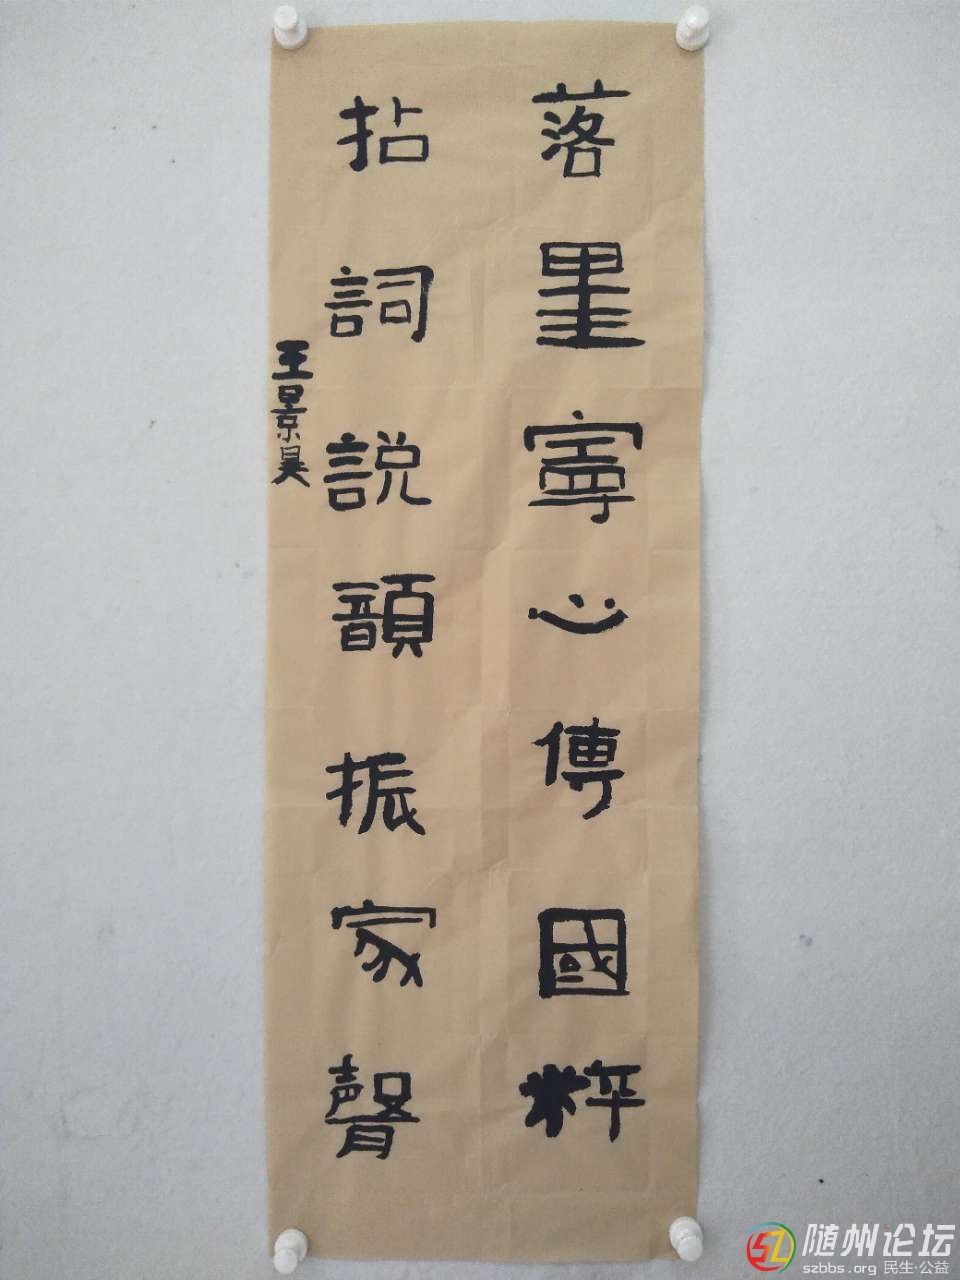 落墨寧心傳國粹
拈詞説韻振家聲
王景昊
随州论坛
szbbs.org 民生·公益